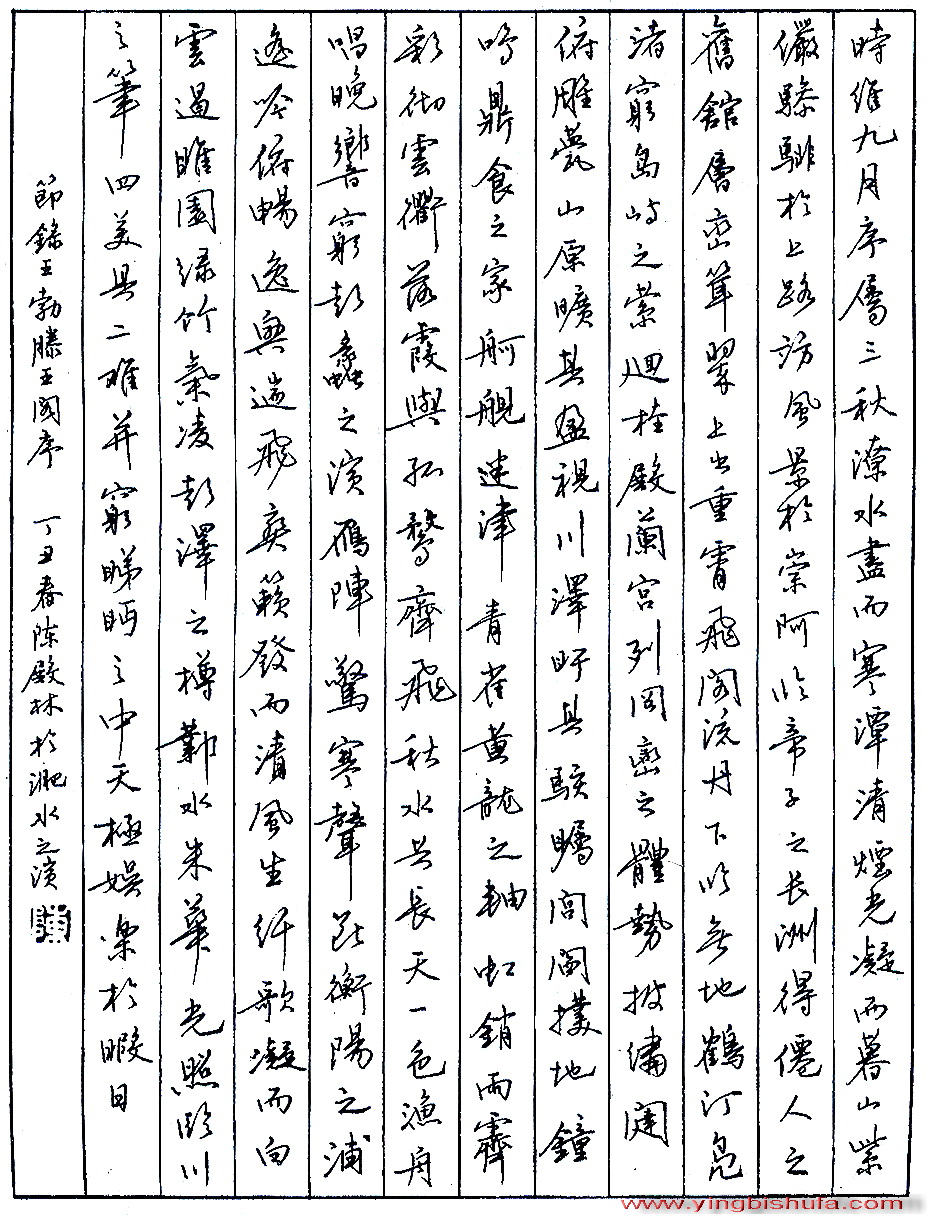 時維九月序屬三秋潦水盡而寒潭清煙光凝而暮山紫
儼驂騑於上路訪風景於崇阿臨帝子之長洲得僊人之
舊館層巒聳翠上出重霄飛閣流丹下臨無地鶴汀鳧
渚窮島嶼之縈迴桂殿蘭宮列岡巒之體勢披繡闥
俯雕甍山原曠其盈視川澤盱其駭矚閭閻撲地鐘
鳴鼎食之家舸艦迷津青雀黃龍之軸虹銷雨霽
彩徹雲衢落霞與孤鶩齊飛秋水共長天一色漁舟
唱晚響窮彭蠡之濱雁陣驚寒聲斷衡陽之浦
遙吟俯暢逸興遄飛爽籟發而清風生纤歌凝而白
雲遏睢園绿竹氣凌彭澤之樽鄴水朱華光照臨川
之筆四美具二难并窮睇眄之中天極娛樂於暇日
節錄王勃滕王阁序 丁丑春陈殿林於淝水之濱
www.yingbishufa.com